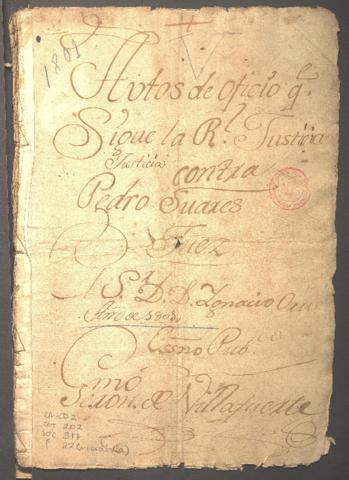 1801
Autos de oficio q.e
Sigue la R.l Justicia
Justicia contra
Pedro Suares
Juez
S.r D. D. Ygnacio
Año de 1801
Esno Pub.co
Geron.mo de Villafuerte
202